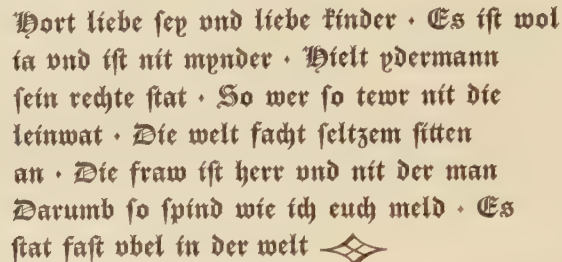 Hort liebe sey vnd liebe kinder · Es ist wol
ia vnd ist nit mynder · Hielt ydermann
sein rechte stat · So wer so tewr nit die
leinwat · Die welt facht seltzem sitten
an · Die fraw ist herr vnd nit der man
Darumb so spind wie ich euch meld · Es
stat fast vbel in der welt